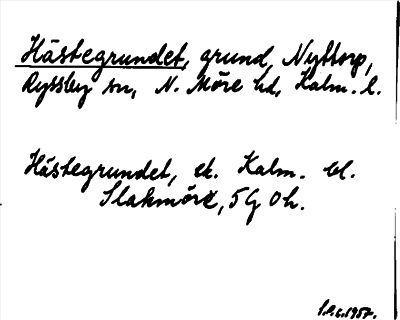 Hästegrundet, grund, Nyttorp,
Ryssby sn, N. Möre hd, Kalm. l.
Hästegrundet, ek. Kalm. bl.
Slakmöre, 5 G Oh.
1957.